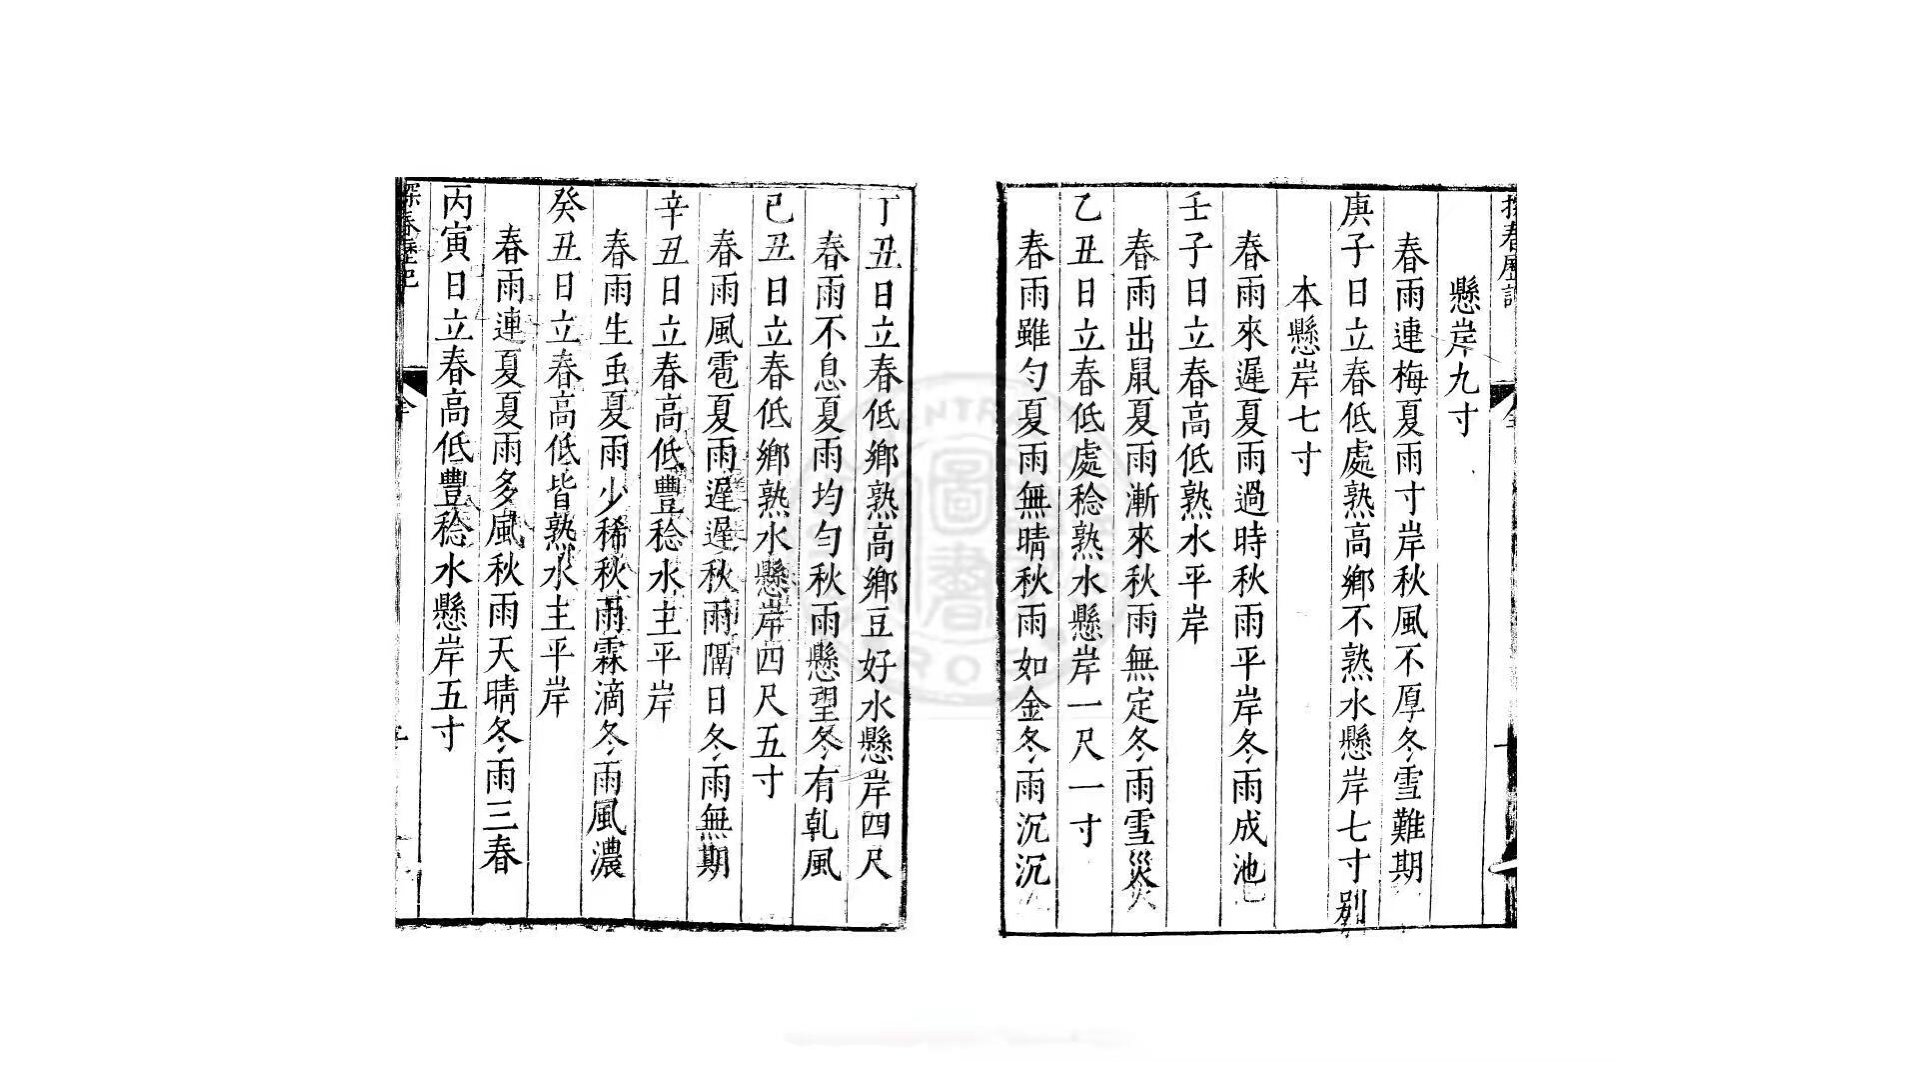 探春歷記
懸岸九寸
春雨連梅夏雨寸岸秋風不厚冬雪難期
庚子日立春低處熟高鄉不熟水懸岸七寸別
本懸岸七寸
春雨來遲夏雨過時秋雨平岸冬雨成池
壬子日立春高低熟水平岸
春雨出鼠夏雨漸來秋雨無定冬雨雪災
乙丑日立春低處稔熟水懸岸一尺一寸
春雨雖勻夏雨無晴秋雨如金冬雨沉沉
丁丑日立春低鄉熟高鄉豆好水懸岸四尺
春雨不息夏雨均勻秋雨懸望冬有乹風
已丑日立春低鄉熟水懸岸四尺五寸
春雨風雹夏雨遲遲秋雨隔日冬雨無期
辛丑日立春高低豐稔水主平岸
春雨生虫夏雨少稀秋雨霖滴冬雨風濃
癸丑日立春高低皆熟水主平岸
春雨連夏夏雨多風秋雨天晴冬雨三春
丙寅日立春高低豐稔水懸岸五寸
探春歷記